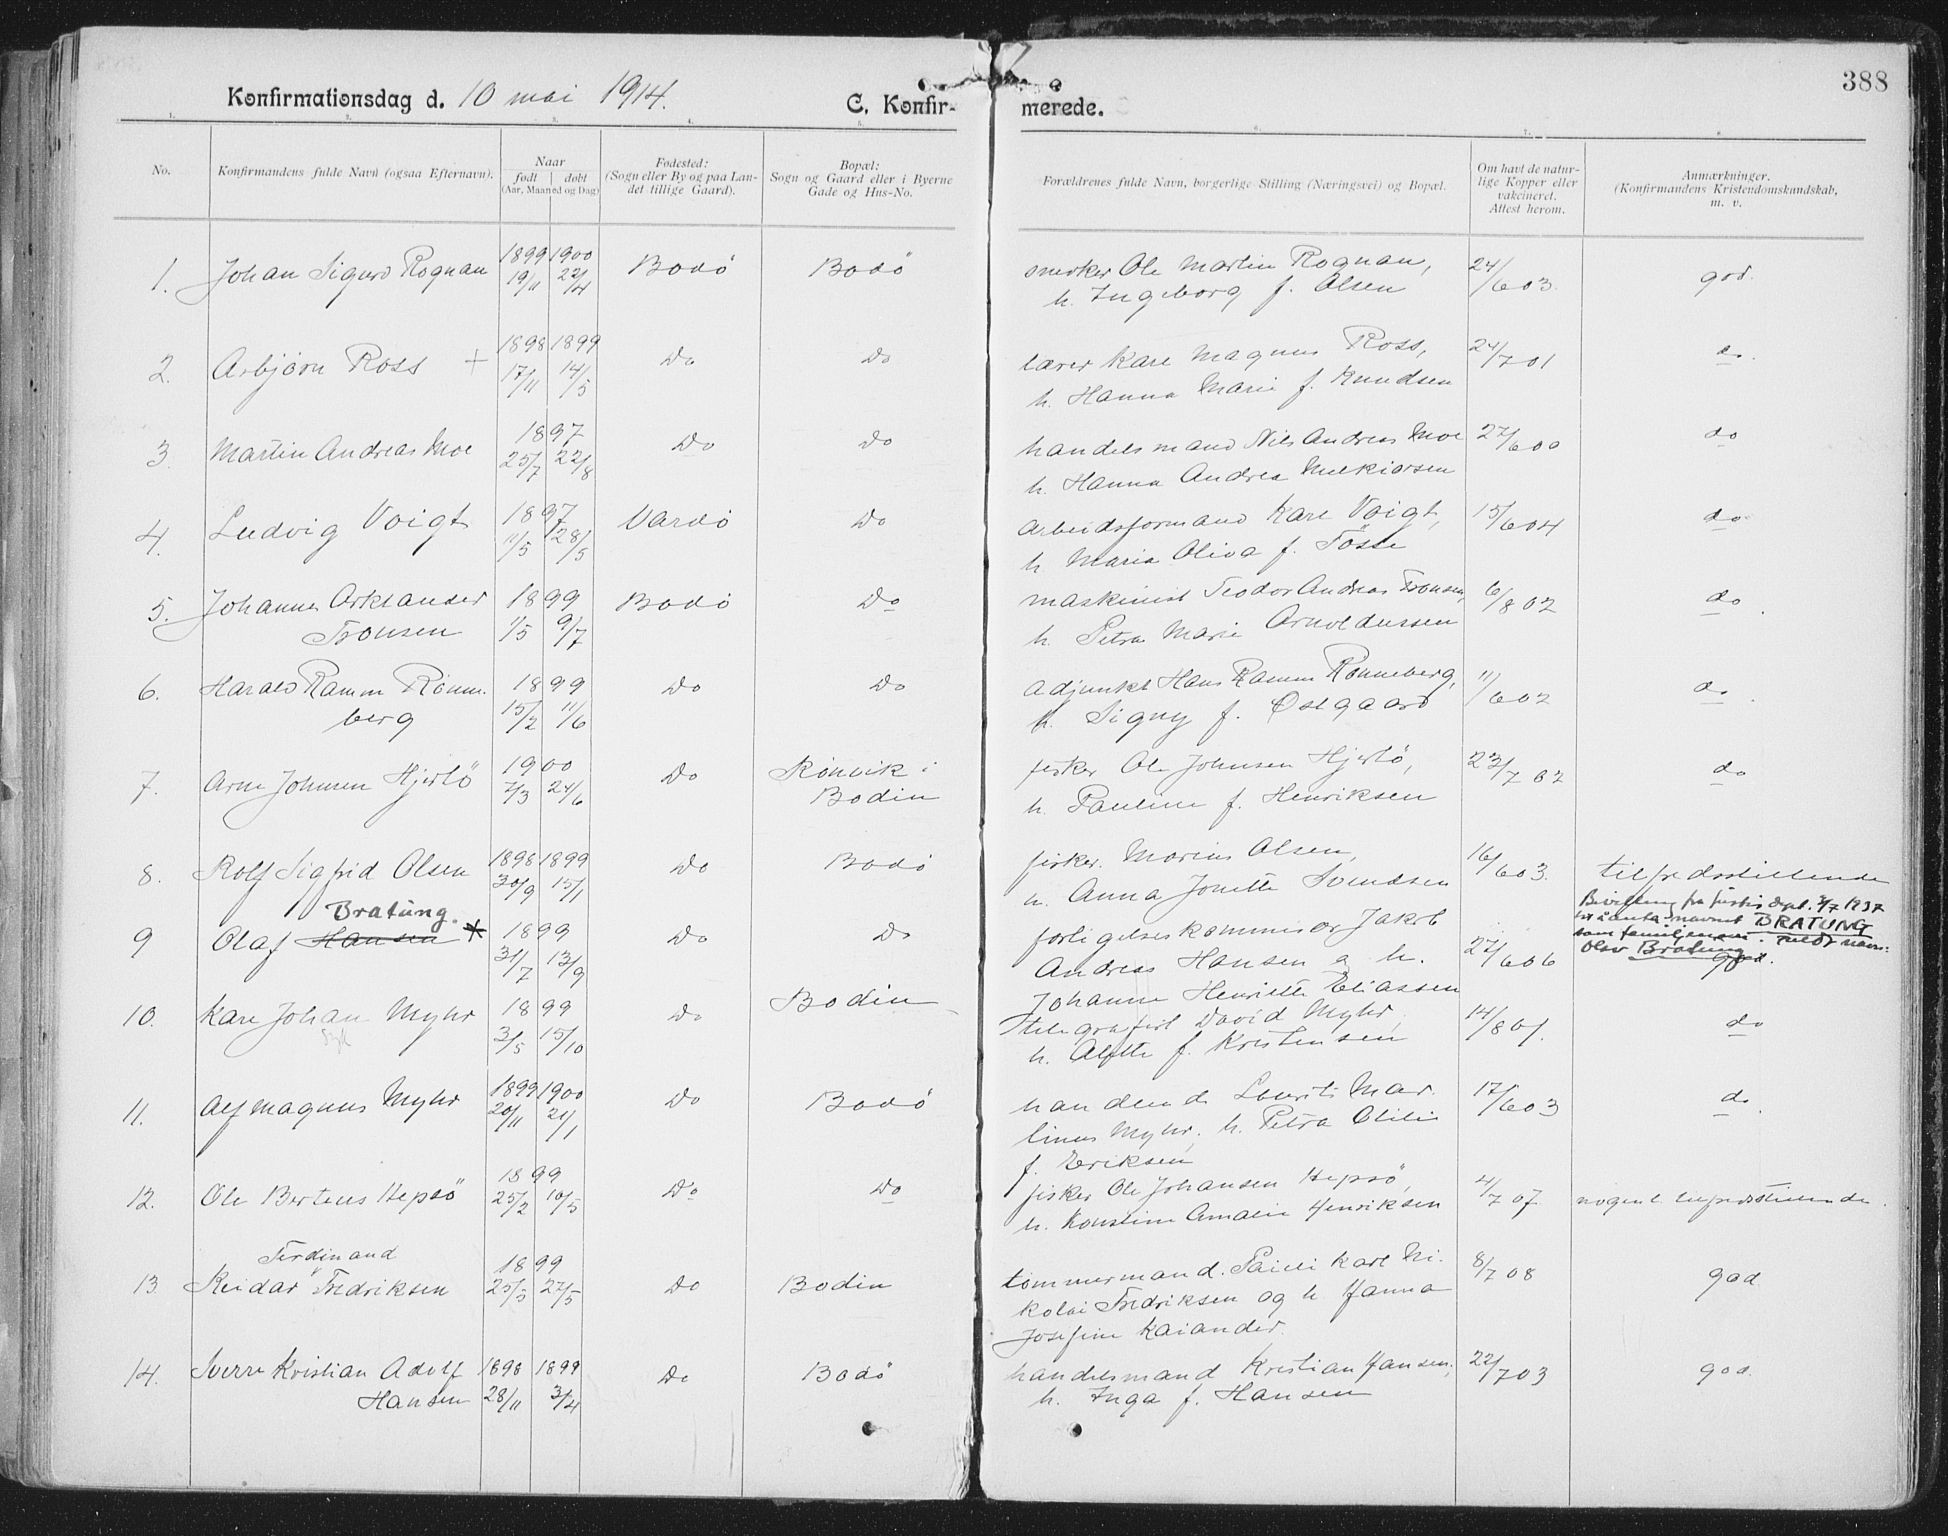 388
Konfirmationsdag d. 10 mai 1914.
C. Konfirmerede.
1. 2. 3. 4. 5. 6. 7. 8.
No.
Konfirmandens fulde Navn (ogsaa Efternavn).
Naar
født | døbt
(Aar, Maaned og Dag)
Fødested:
(Sogn eller By og paa Landet tillige Gaard).
Bopæl:
Sogn og Gaard eller i Byerne
Gade og Hus-No.
Forældrenes fulde Navn, borgerlige Stilling (Næringsvei) og Bopæl.
Om havt de naturlige Kopper eller
vakcineret.
Attest herom.
Anmærkninger.
(Konfirmandens Kristendomskundskab,
m. v.
1. Johan Sigurd Rognan 1899 19/11 1900 22/4 Bodö Bodö
smerker Ole Martin Rognan,
h. Ingeborg f. Olsen 24/6 03. god.
2. Asbjørn Ross + 1898 17/11 1899 14/5 Do Do
lærer Karl Magnus Ross,
h. Hanna Marie f. Knudsen 24/7 01 do.
3. Martin Andreas Moe 1897 25/7 22/8 Do Do
handelsmand Nils Andreas Moe
h. Hanna Andrea Melkiorsen 27/6 00 do
4. Ludvig Voigt 1897 11/5 28/5 Vardö Do
arbeidsformand Karl Voigt,
h. Maria Oliva f. Tösse 15/6 04 do
5. Johannes Arktander
Tronsen 1899 1/5 9/7 Bodö Do
maskinist Teodor Andreas Tronsen,
h. Petra Marie Arnoldussen 6/8 02 do.
6. Harald Ramm Rönneberg 1899 15/2 11/6 Do Do
adjunkt Hans Ramm Rönneberg,
h. Signy f. Østgaard 11/6 02 do.
7. Arne Johnsen Hjertö 1900 7/3 24/6 Do Rönvik i
Bodin
fisker Ole Johnsen Hjertö,
h. Pauline f. Henriksen 23/7 02 do
8. Rolf Sigfrid Olsen 1898 30/9 1899 15/1 Do Bodö
fisker Marius Olsen,
h. Anna Jonette Svendsen 16/6 03. tilfredsstillende
Bratung.
9 Olaf Hansen * 1899 31/7 13/9 Do Do
forligelseskommisær Jakob
Andreas Hansen og h.
Johanne Henriette Eliassen 27/6 06
Bevilling fra justis dept. 7/7 1937
til å anta navnet BRATUNG
som familjenavn. Fulde navn:
Olav Bratung
god.
10. Karl Johan Myhr 1899 3/5 15/10 Do Bodin
Telegrafist David Myhr,
h. Alette f. Kristensen 14/8 01. do
11. Alf Magnus Myhr 1899 20/11 1900 21/1 Do Bodö
handlende Laurits Martinus Myhr, h. Petra Otilie
f. Eriksen 17/6 03 do.
12. Ole Berteus Hepsö 1899 25/2 10/5 Do Do
fisker Ole Johansen Hepsö,
h. Konstine Amalie Henriksen 4/7 07 nogenl. tilfredsstillende.
Ferdinand
13. Reidar Fredriksen 1899 25/3 27/5 Do Bodin
tømmermand Karl Nikolai Fredriksen og h. Hanna
Josefine Kaiander. 8/7 08 god
14. Sverre Kristian Adolf
Hansen 1898 28/11 1899 3/4 Do Bodö
handelsmand Kristian Hansen,
h. Inga f. Hansen 22/7 03 god.